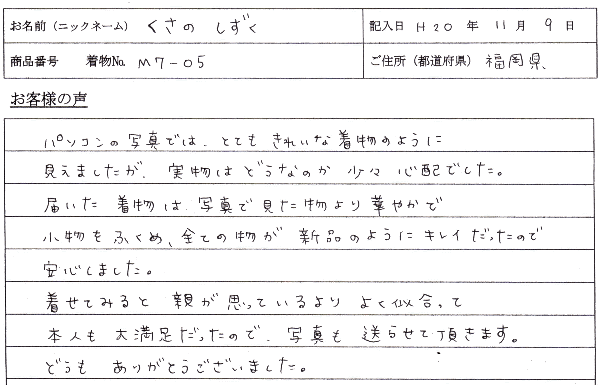 お名前(ニックネーム) くさの しずく 記入日 H20 年 11 月 9 日
商品番号 着物No. M7-05 ご住所(都道府県) 福岡県、
お客様の声
パソコンの写真では、とても きれいな着物のように
見えましたが、実物はどうなのか 少々 心配でした。
届いた 着物は、写真で見た物より華やかで
小物をふくめ、全ての物が 新品のようにキレイだったので
安心しました。
着せてみると 親が思っているより よく似合って
本人も 大満足だったので、写真も 送らせて頂きます。
どうも ありがとうございました。